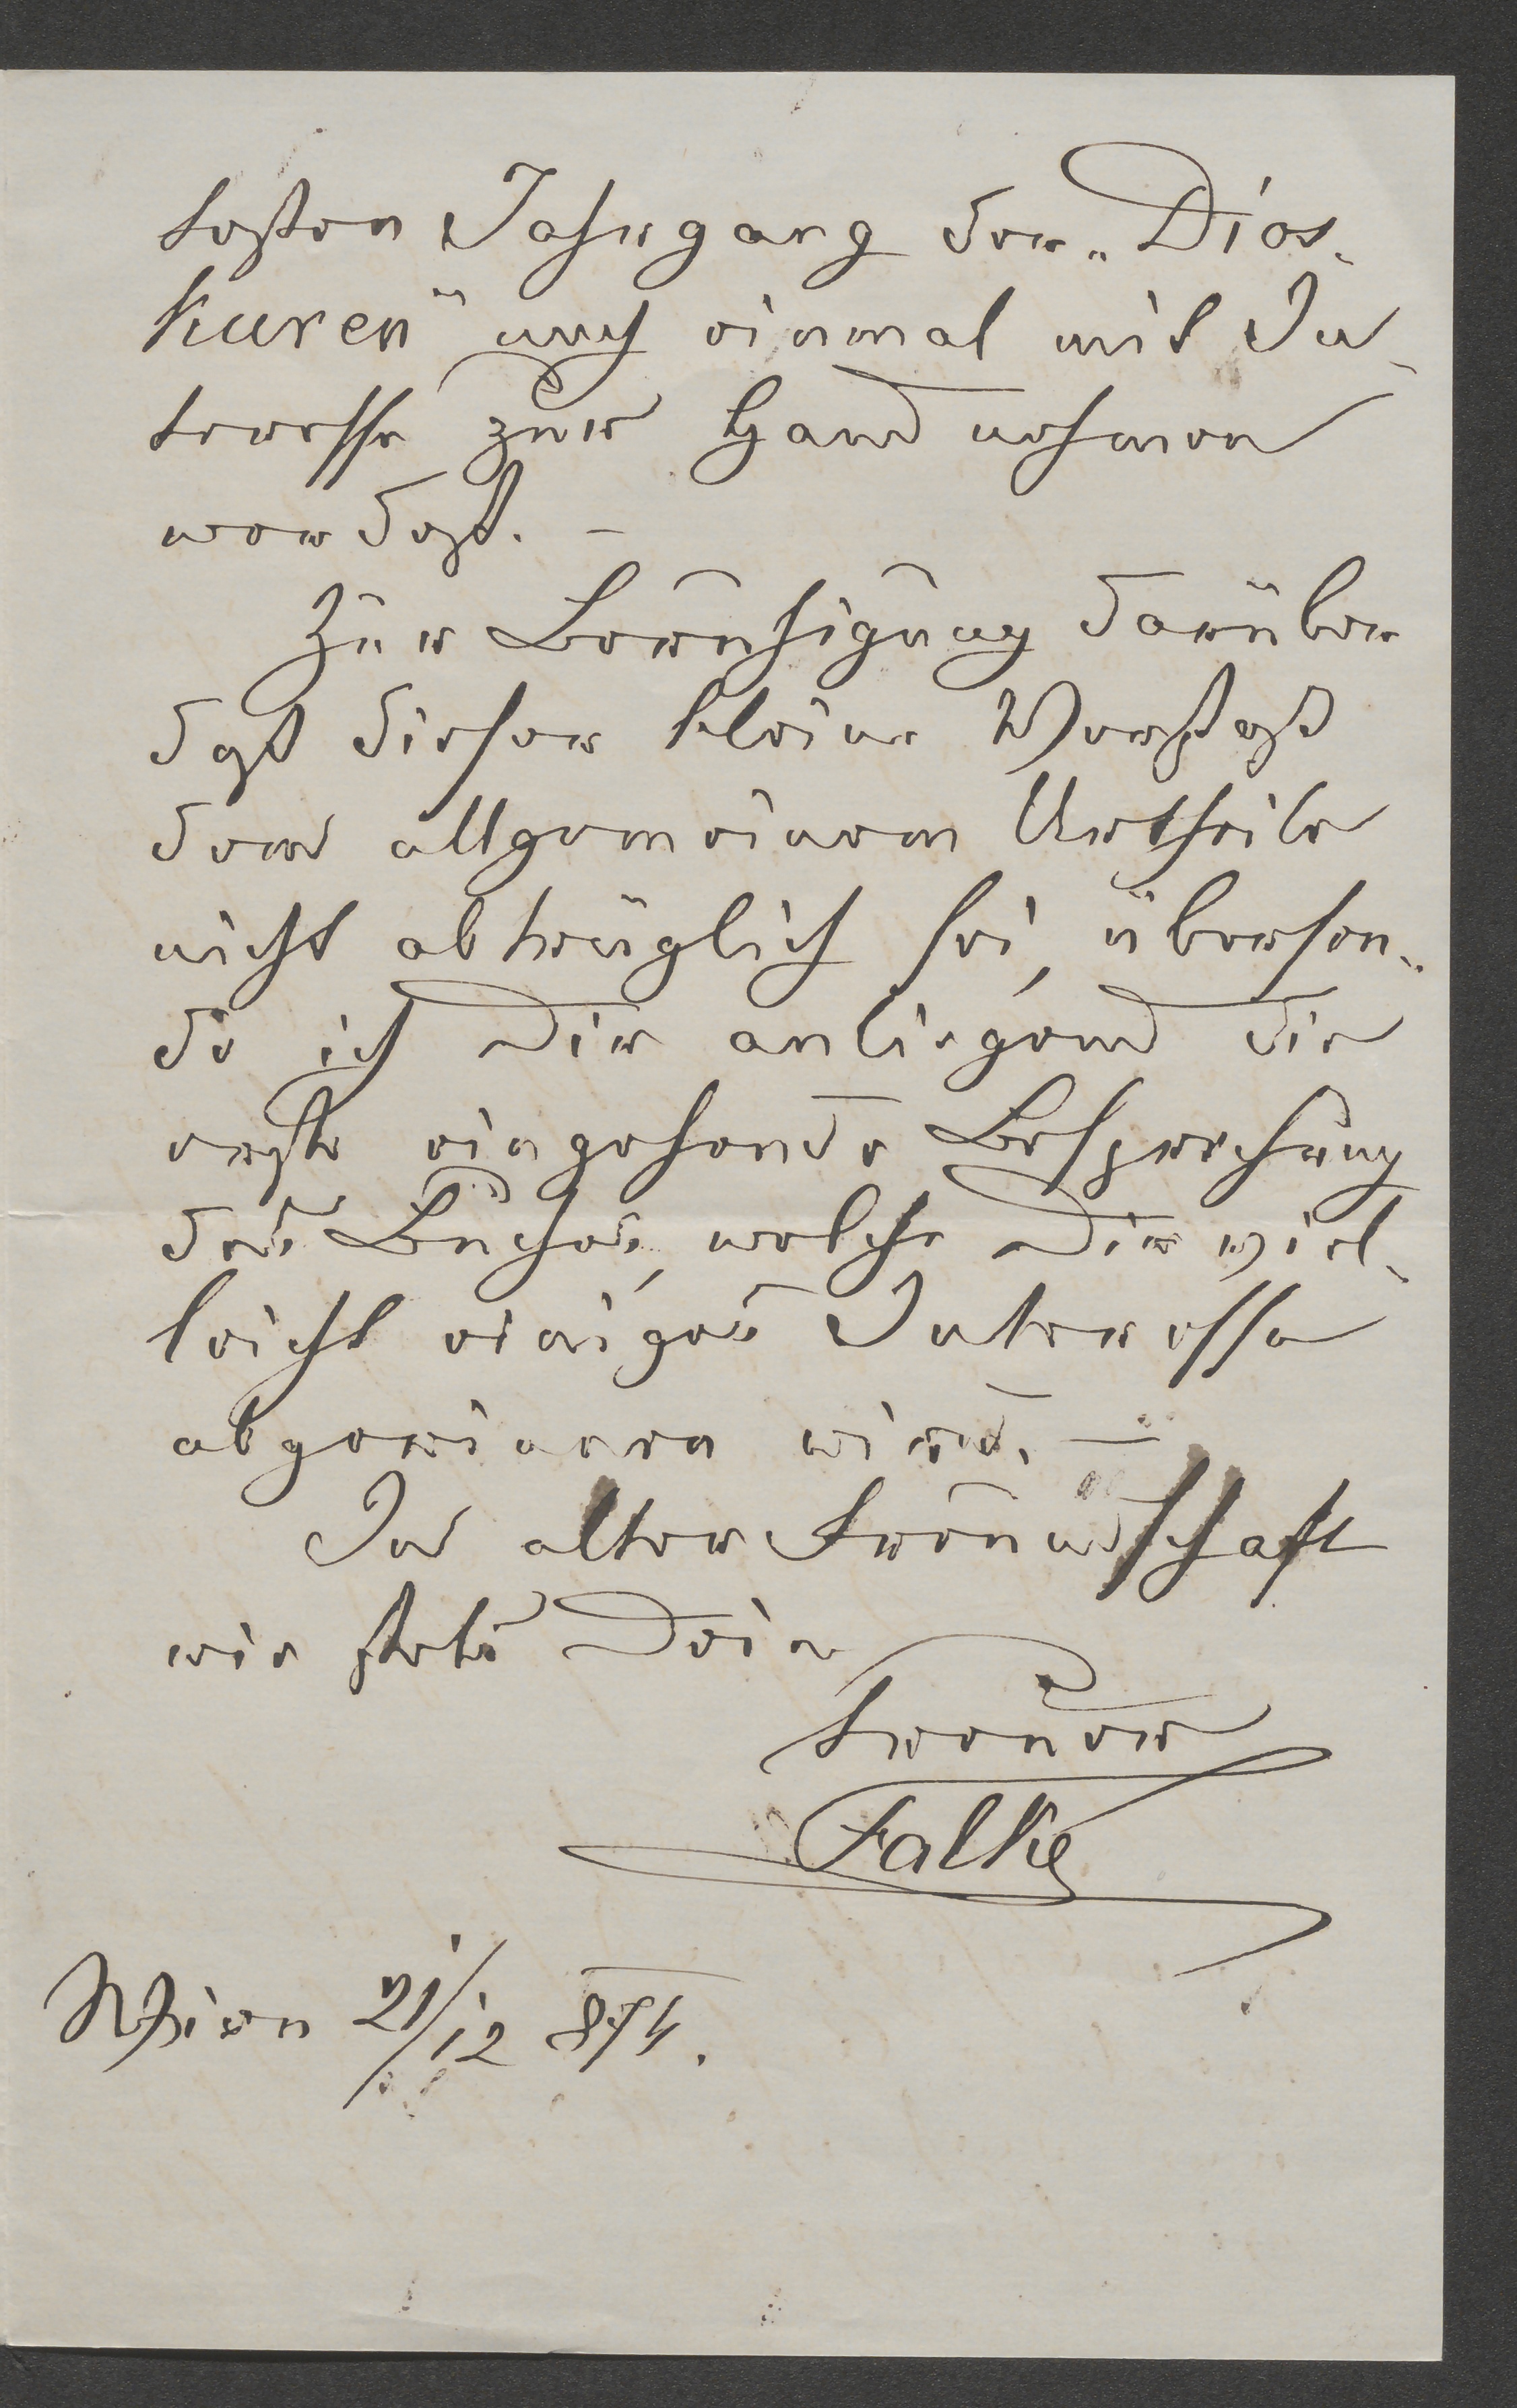 testen Jahrgang der „Dios-
kuren" noch einmal mit In-
teresse zur Hand nehmen
werdest. –
Zur Beruhigung darüber
daß dieser kleine Verstoß
dem allgemeinen Urtheile
nicht abträglich sei, übersen-
de ich Dir anliegend die
erste eingehende Besprechung
des Buches, welche Dir viel-
leicht einiges Interesse
abgewinnen wird. —
In alter Freundschaft
wie stets Dein
treuer
Falke
Wien 21/12 874.